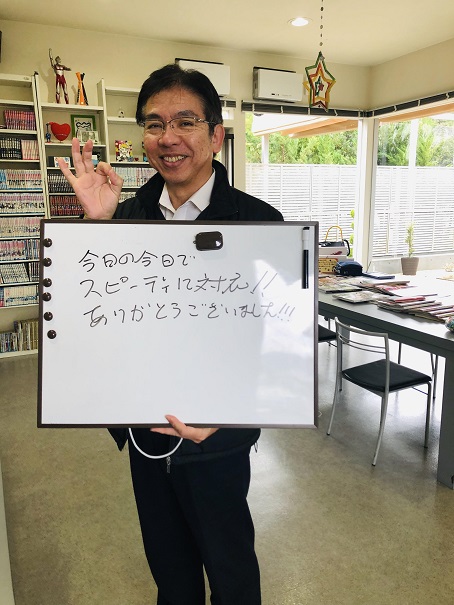 今日の今日で
スピーディに対応!!
ありがとうございました!!!